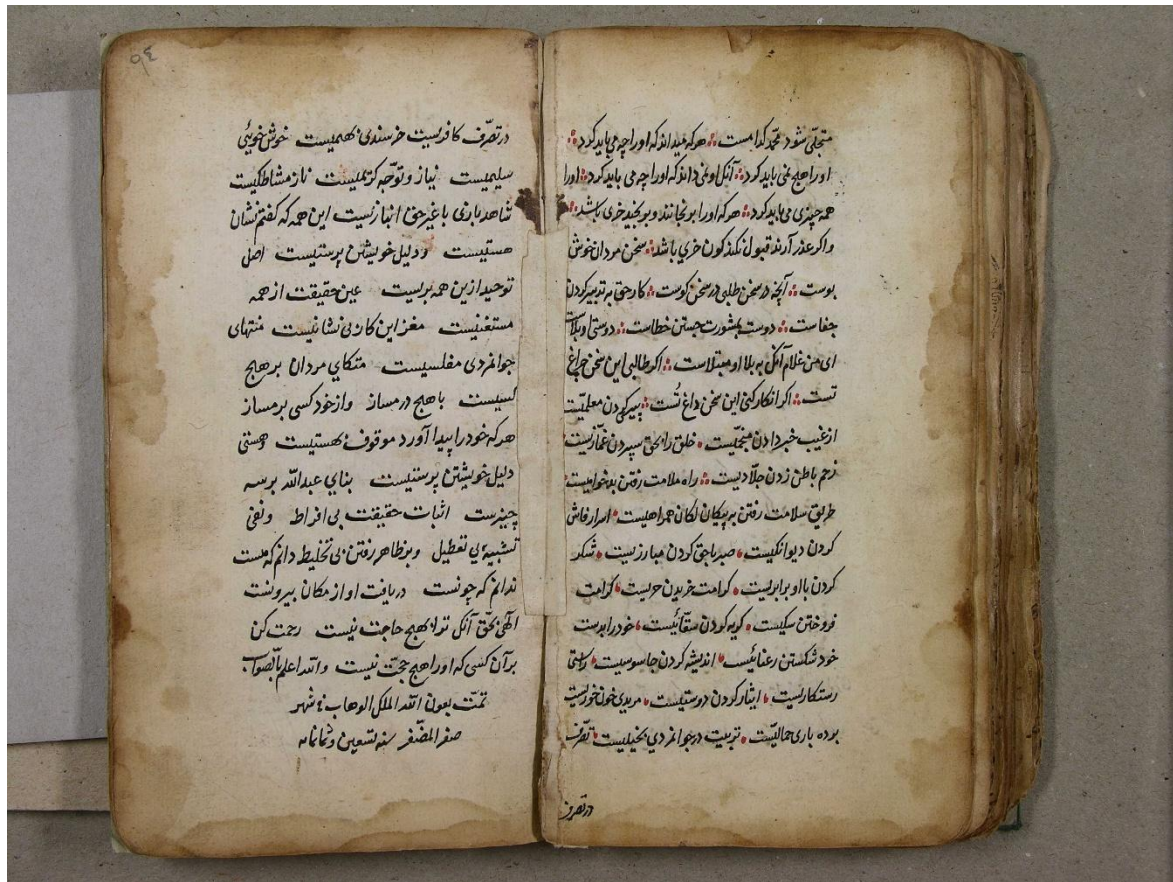 متجلی شود محمد کدامست ؞ هرکه میداند که او را چه می باید کرد ؞
او را هیچ نمی باید کرد ؞ آنک او نمی داند که او را چه می باید کرد ؞ او را
همه چیزی می باید کرد ؞ هرکه او را برنجانند و برنجد خری باشد ؞
واکر عذر آرند قبول نکند کون خری باشد ؞ سخن مردان خوش
بوست ؞ آنچه در سخن طلبی در سخن کوست ؞ کار حق به تدبیر کردن
جفاست ؞ دوست بمشورت جستن خطاست ؞ دوستی او بلاست
ای من غلام آنک به بلا او مبتلاست ؞ اکر طالبی این سخن چراغ
تست ؞ اکر انکار کنی این سخن داغ تست ؞ پیری کردن معلمیست
از غیب خبر دادن منجمیست ؞ خلق را بحق سپردن غمازیست
زخم باطن زدن جلادیست ؞ راه ملامت رفتن بدخواهیست
طریق سلامت رفتن به پیکان لکان همراهیست ؞ اسرار فاش
کردن دیوانکیست ؞ صبر با حق کردن مبارزیست ؞ شکر
کردن با او برابریست ؞ کرامت خریدن خریست ؞ کرامت
فروختن سکیست ؞ کریه کردن سقائیست ؞ خود را بدست
خود شکستن رعنائیست ؞ اندیشه کردن جاسوسیست ؞ راستی
رستکاریست ؞ ایثار کردن دوستیست ؞ مریدی خون خوریست
بوده باری حمالیست ؞ تربیت در جوانمردی بخیلیست ؞ تصرف
در تصرف
۹٤
در تصرف کافریست خرسندی بهمیست خوش خویئی
سلیمیست نیاز و توجه کرتلیست ناز مشاطکیست
شاهد بازی با غیر حق انبازیست این همه که کفتم نشان
هستیست و دلیل خویشتن پرستیست اصل
توحید ازین همه بریست عین حقیقت از همه
مستغنیست مغز این کار بی نشانیست منتهای
جوانمردی مفلسیست متکای مردان بر هیچ
کسیست با هیچ درمساز و از خود کسی برمساز
هرکه خود را پیدا آورد موقوف هستیست و هستی
دلیل خویشتن پرستیست بنای عبدالله برسه
چیزست اثبات حقیقت بی افراط و نفی
تشبیه بی تعطیل و بر ظاهر رفتن بی تخلیط دانم که هست
ندانم که چونست دریافت او از مکان بیرونست
الهی بحق آنک ترا بهیچ حاجت نیست رحمت کن
بر آن کسی که او را هیچ حجت نیست والله اعلم بالصواب
تمت بعون الله الملک الوهاب فی شهر
صفر المظفر سنه تسعین و ثمانمائه